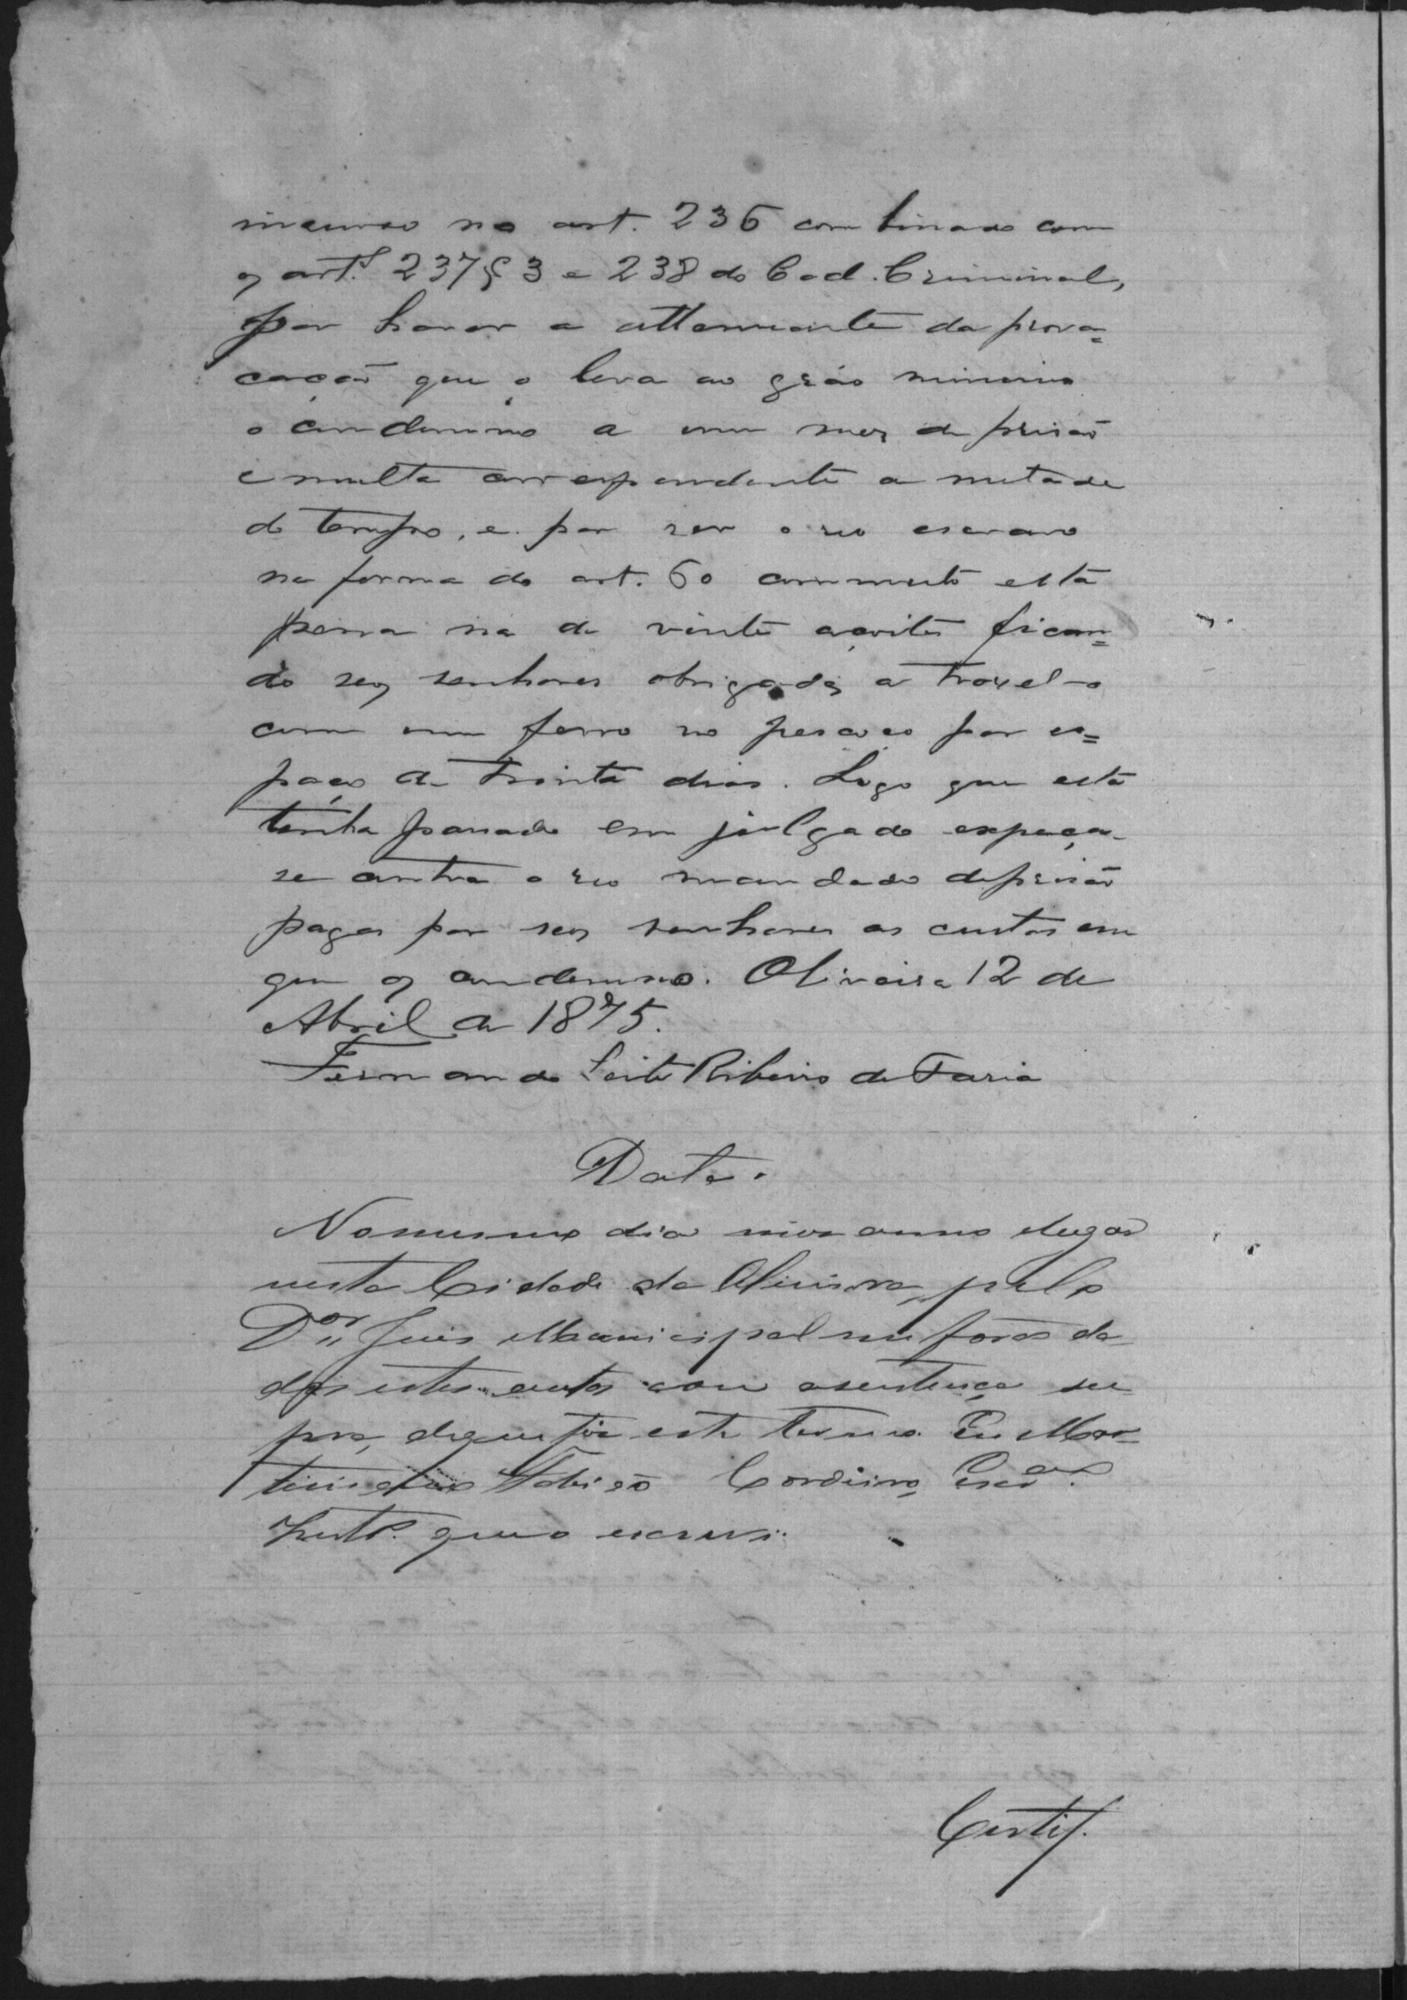 incurso no art. 236 combinado com
os art.s 237 § 3 e 238 do Cod. Criminal,
por haver a attenuante da provo=
cação que o leva ao gráo minimo
o condemno a um mez de prisão
e multa correspondente a metade
do tempo, e por ser o reo escravo
na forma do art. 60 commuto esta
pena na de vinte açoites fican=
do seos senhores obrigados a trazel-o
com um ferro no pescoço por es=
paço de trinta dias. Logo que esta
tenha passado em julgado expeça-
se contra o reo mandado de prisão
pagas por seos senhores as custas em
que os condemno. Oliveira 12 de
Abril de 1875.
Fernando Leite Ribeiro de Faria
Data.
No mesmo dia mez anno elugar
nesta Cidade da Oliveira, pelo
D.or Juis Municipal me forão da
dos estes autos com asentença su
pra, deque fiz este termo. Eu Mar-
Cordeiro, Escr.am
que o escrevi.
Certif.